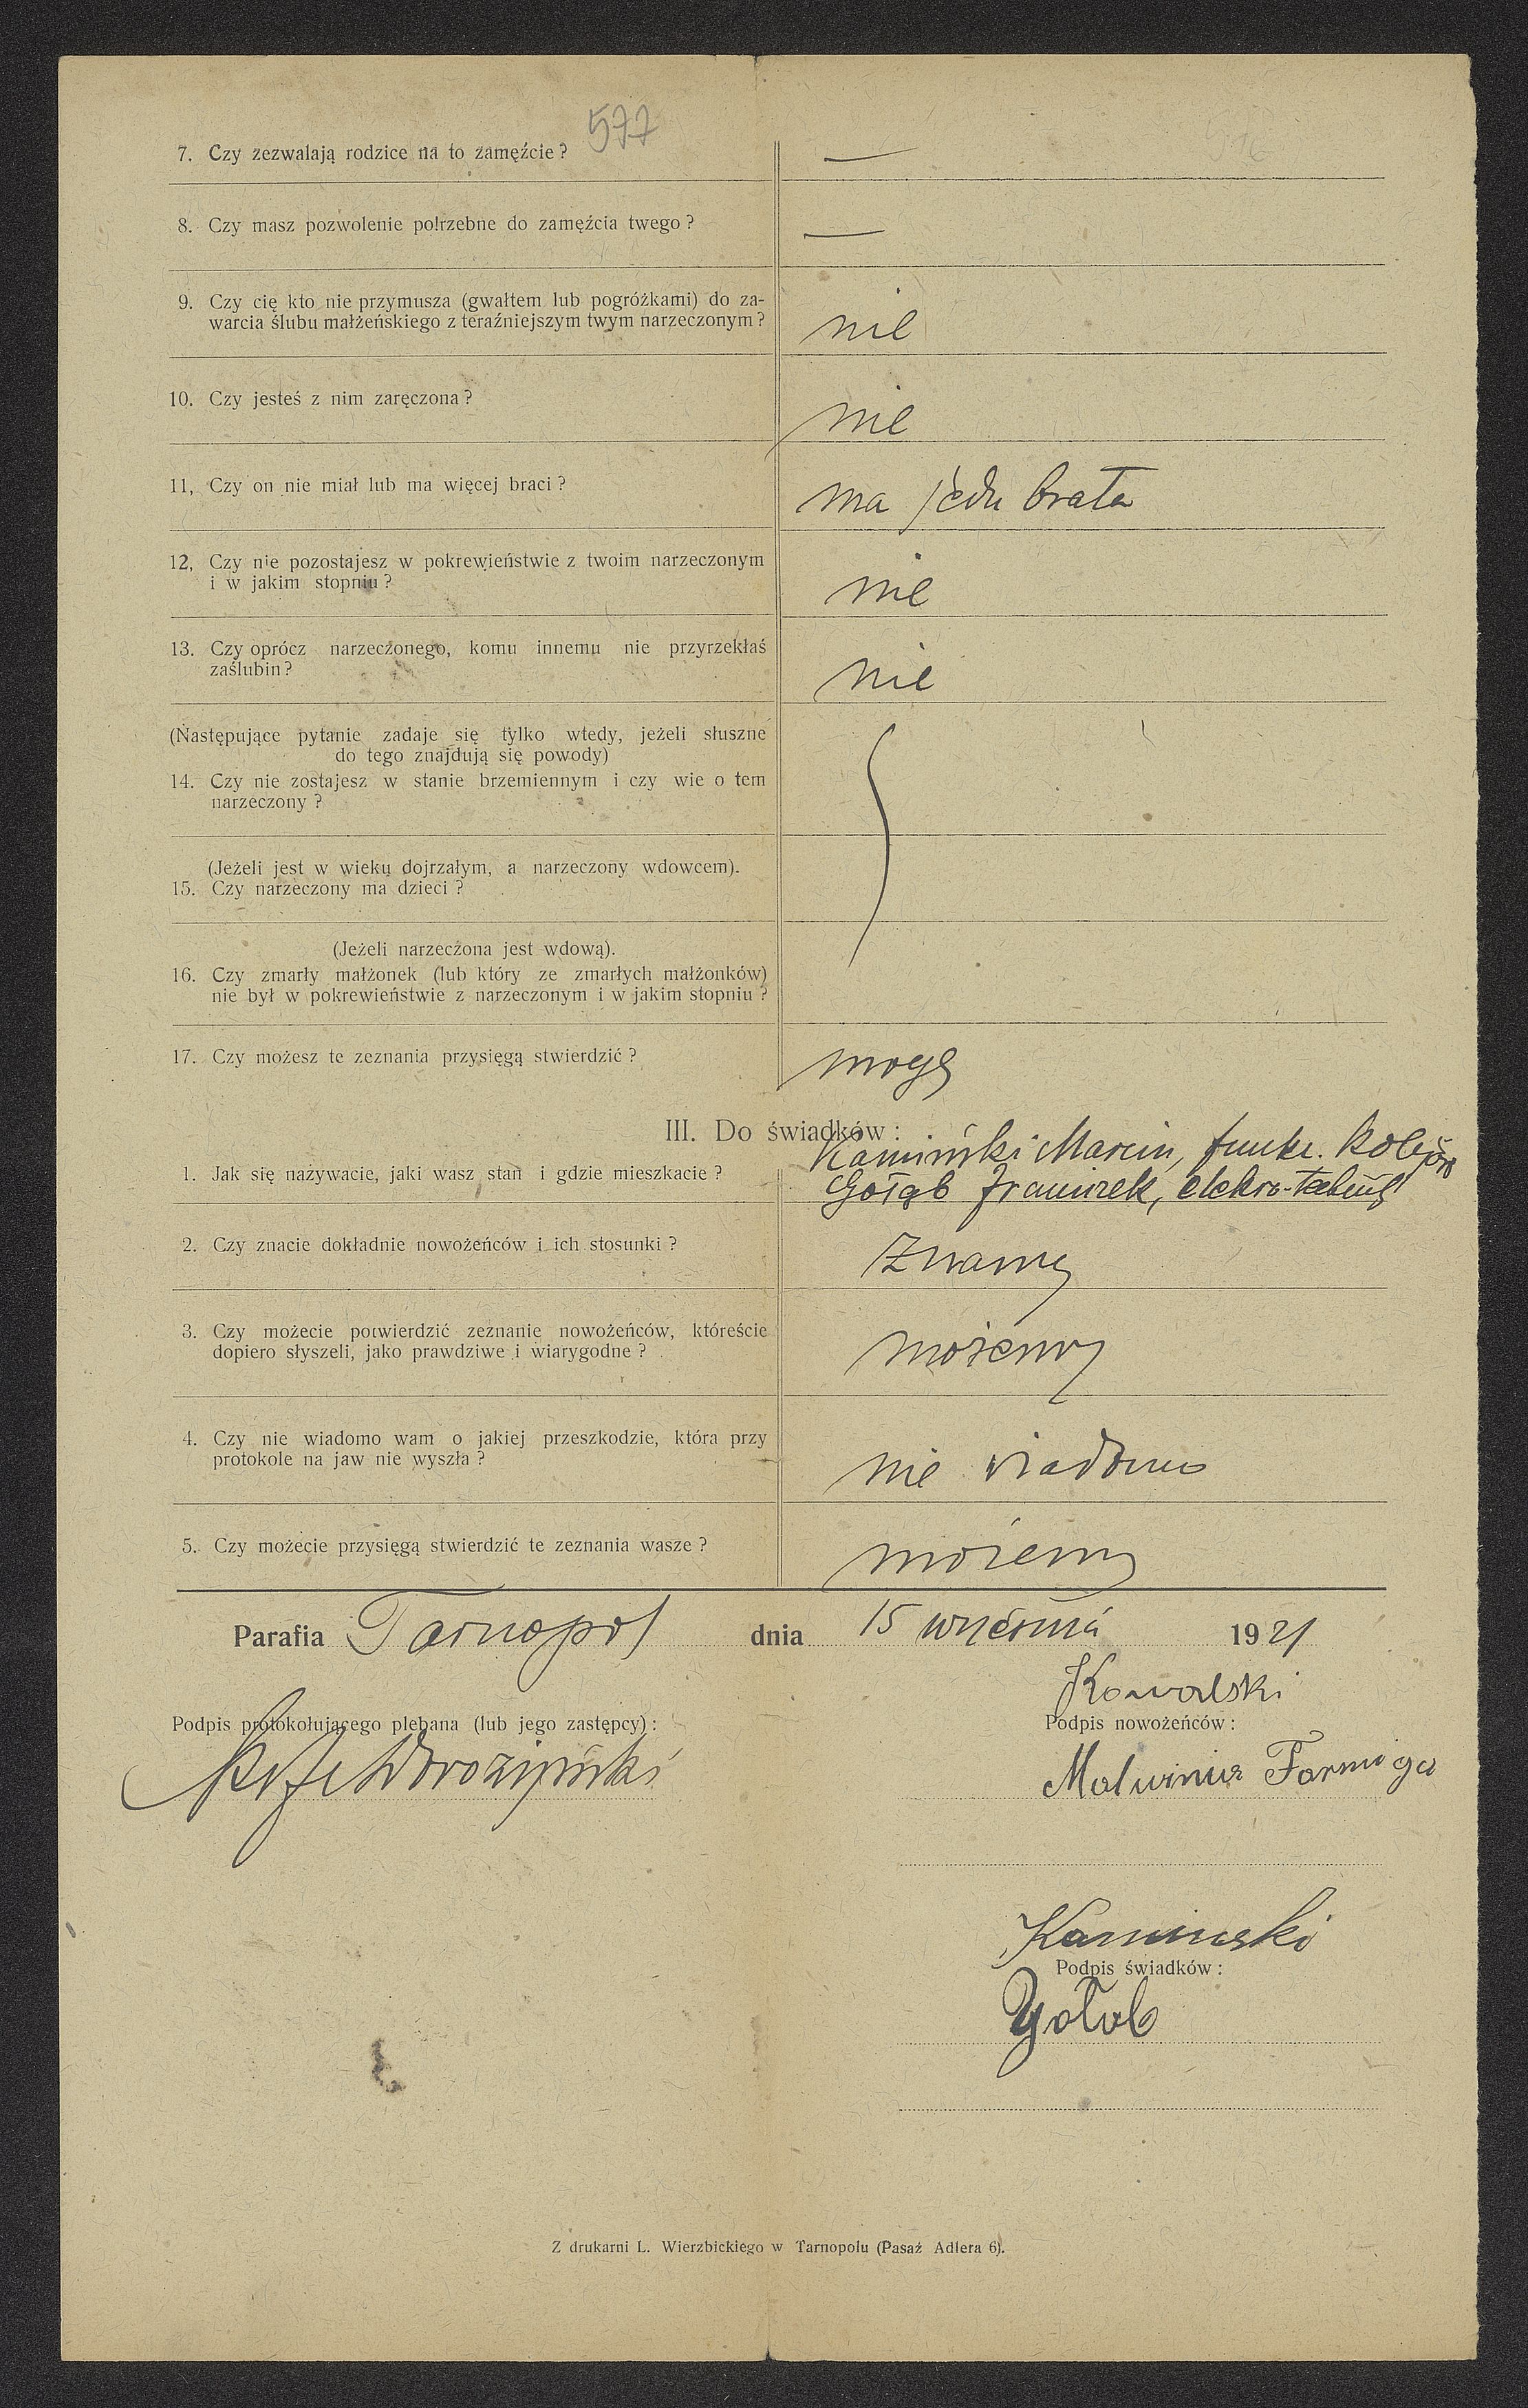 577
7. Czy zezwalają rodzice na to zamęźcie? —
8. Czy masz pozwolenie potrzebne do zamęźcia twego? —
9. Czy cię kto nie przymusza (gwałtem lub pogróżkami) do za-
warcia ślubu małżeńskiego z teraźniejszym twym narzeczonym? nie
10. Czy jesteś z nim zaręczona? nie
11, Czy on nie miał lub ma więcej braci? ma jedn brata
12, Czy nie pozostajesz w pokrewieństwie z twoim narzeczonym
i w jakim stopniu? nie
13. Czy oprócz narzeczonego, komu innemu nie przyrzekłaś
zaślubin? nie
(Następujące pytanie zadaje się tylko wtedy, jeżeli słuszne
do tego znajdują się powody)
14. Czy nie zostajesz w stanie brzemiennym i czy wie o tem
narzeczony?
(Jeżeli jest w wieku dojrzałym, a narzeczony wdowcem).
15. Czy narzeczony ma dzieci?
(Jeżeli narzeczona jest wdową).
16. Czy zmarły małżonek (lub który ze zmarłych małżonków)
nie był w pokrewieństwie z narzeczonym i w jakim stopniu?
17. Czy możesz te zeznania przysięgą stwierdzić? mogę
III. Do świadków:
Kamiński Marcin, funkc. kolejow
1. Jak się nazywacie, jaki wasz stan i gdzie mieszkacie?
Gołąb Franciszek,
2. Czy znacie dokładnie nowożeńców i ich stosunki? Znamy
3. Czy możecie potwierdzić zeznanie nowożeńców, któreście
dopiero słyszeli, jako prawdziwe i wiarygodne? możemy
4. Czy nie wiadomo wam o jakiej przeszkodzie, która przy
protokole na jaw nie wyszła? nie wiadomo
5. Czy możecie przysięgą stwierdzić te zeznania wasze? możemy
Parafia Tarnopol dnia 15 września 1921
Kowalski
Podpis protokołującego plebana (lub jego zastępcy): Podpis nowożeńców:
Malwina Farmiga
Kaminski
Podpis świadków:
Gołob
Z drukarni L. Wierzbickiego w Tarnopolu (Pasaź Adlera 6).